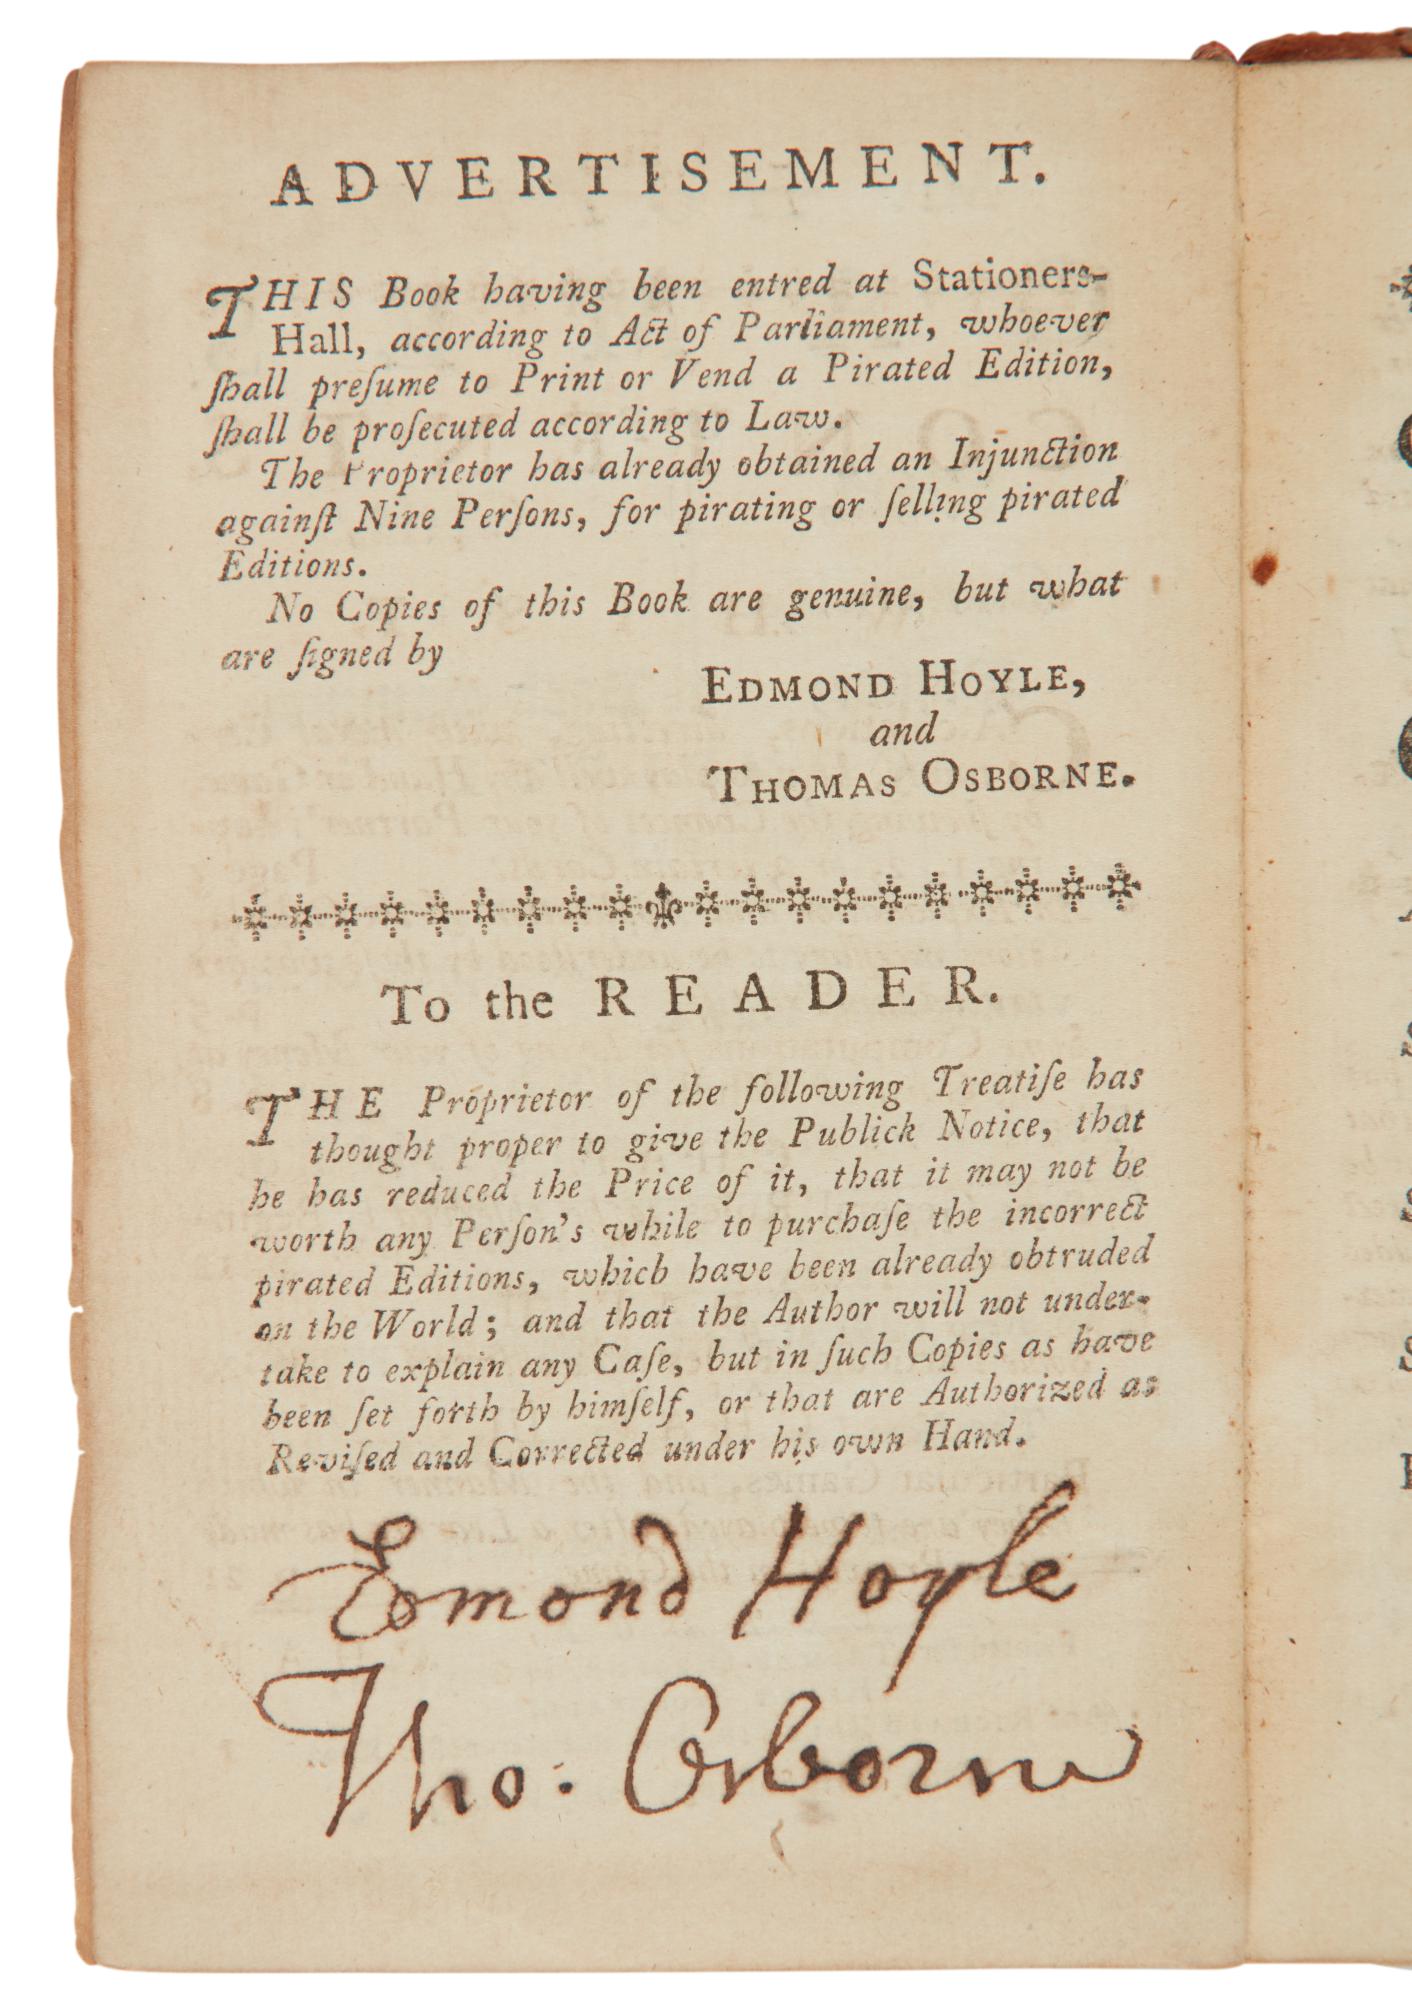 ADVERTISEMENT.
THIS Book having been entred at Stationers-
Hall, according to Act of Parliament, whoever
ſhall preſume to Print or Vend a Pirated Edition,
ſhall be proſecuted according to Law.
The Proprietor has already obtained an Injunction
againſt Nine Perſons, for pirating or ſelling pirated
Editions.
No Copies of this Book are genuine, but what
are ſigned by
EDMOND HOYLE,
and
THOMAS OSBORNE.
To the READER.
THE Proprietor of the following Treatiſe has
thought proper to give the Publick Notice, that
he has reduced the Price of it, that it may not be
worth any Perſon's while to purchaſe the incorrect
pirated Editions, which have been already obtruded
on the World; and that the Author will not under-
take to explain any Caſe, but in ſuch Copies as have
been ſet forth by himſelf, or that are Authorized as
Reviſed and Corrected under his own Hand.
Edmond Hoyle
Tho. Osborne